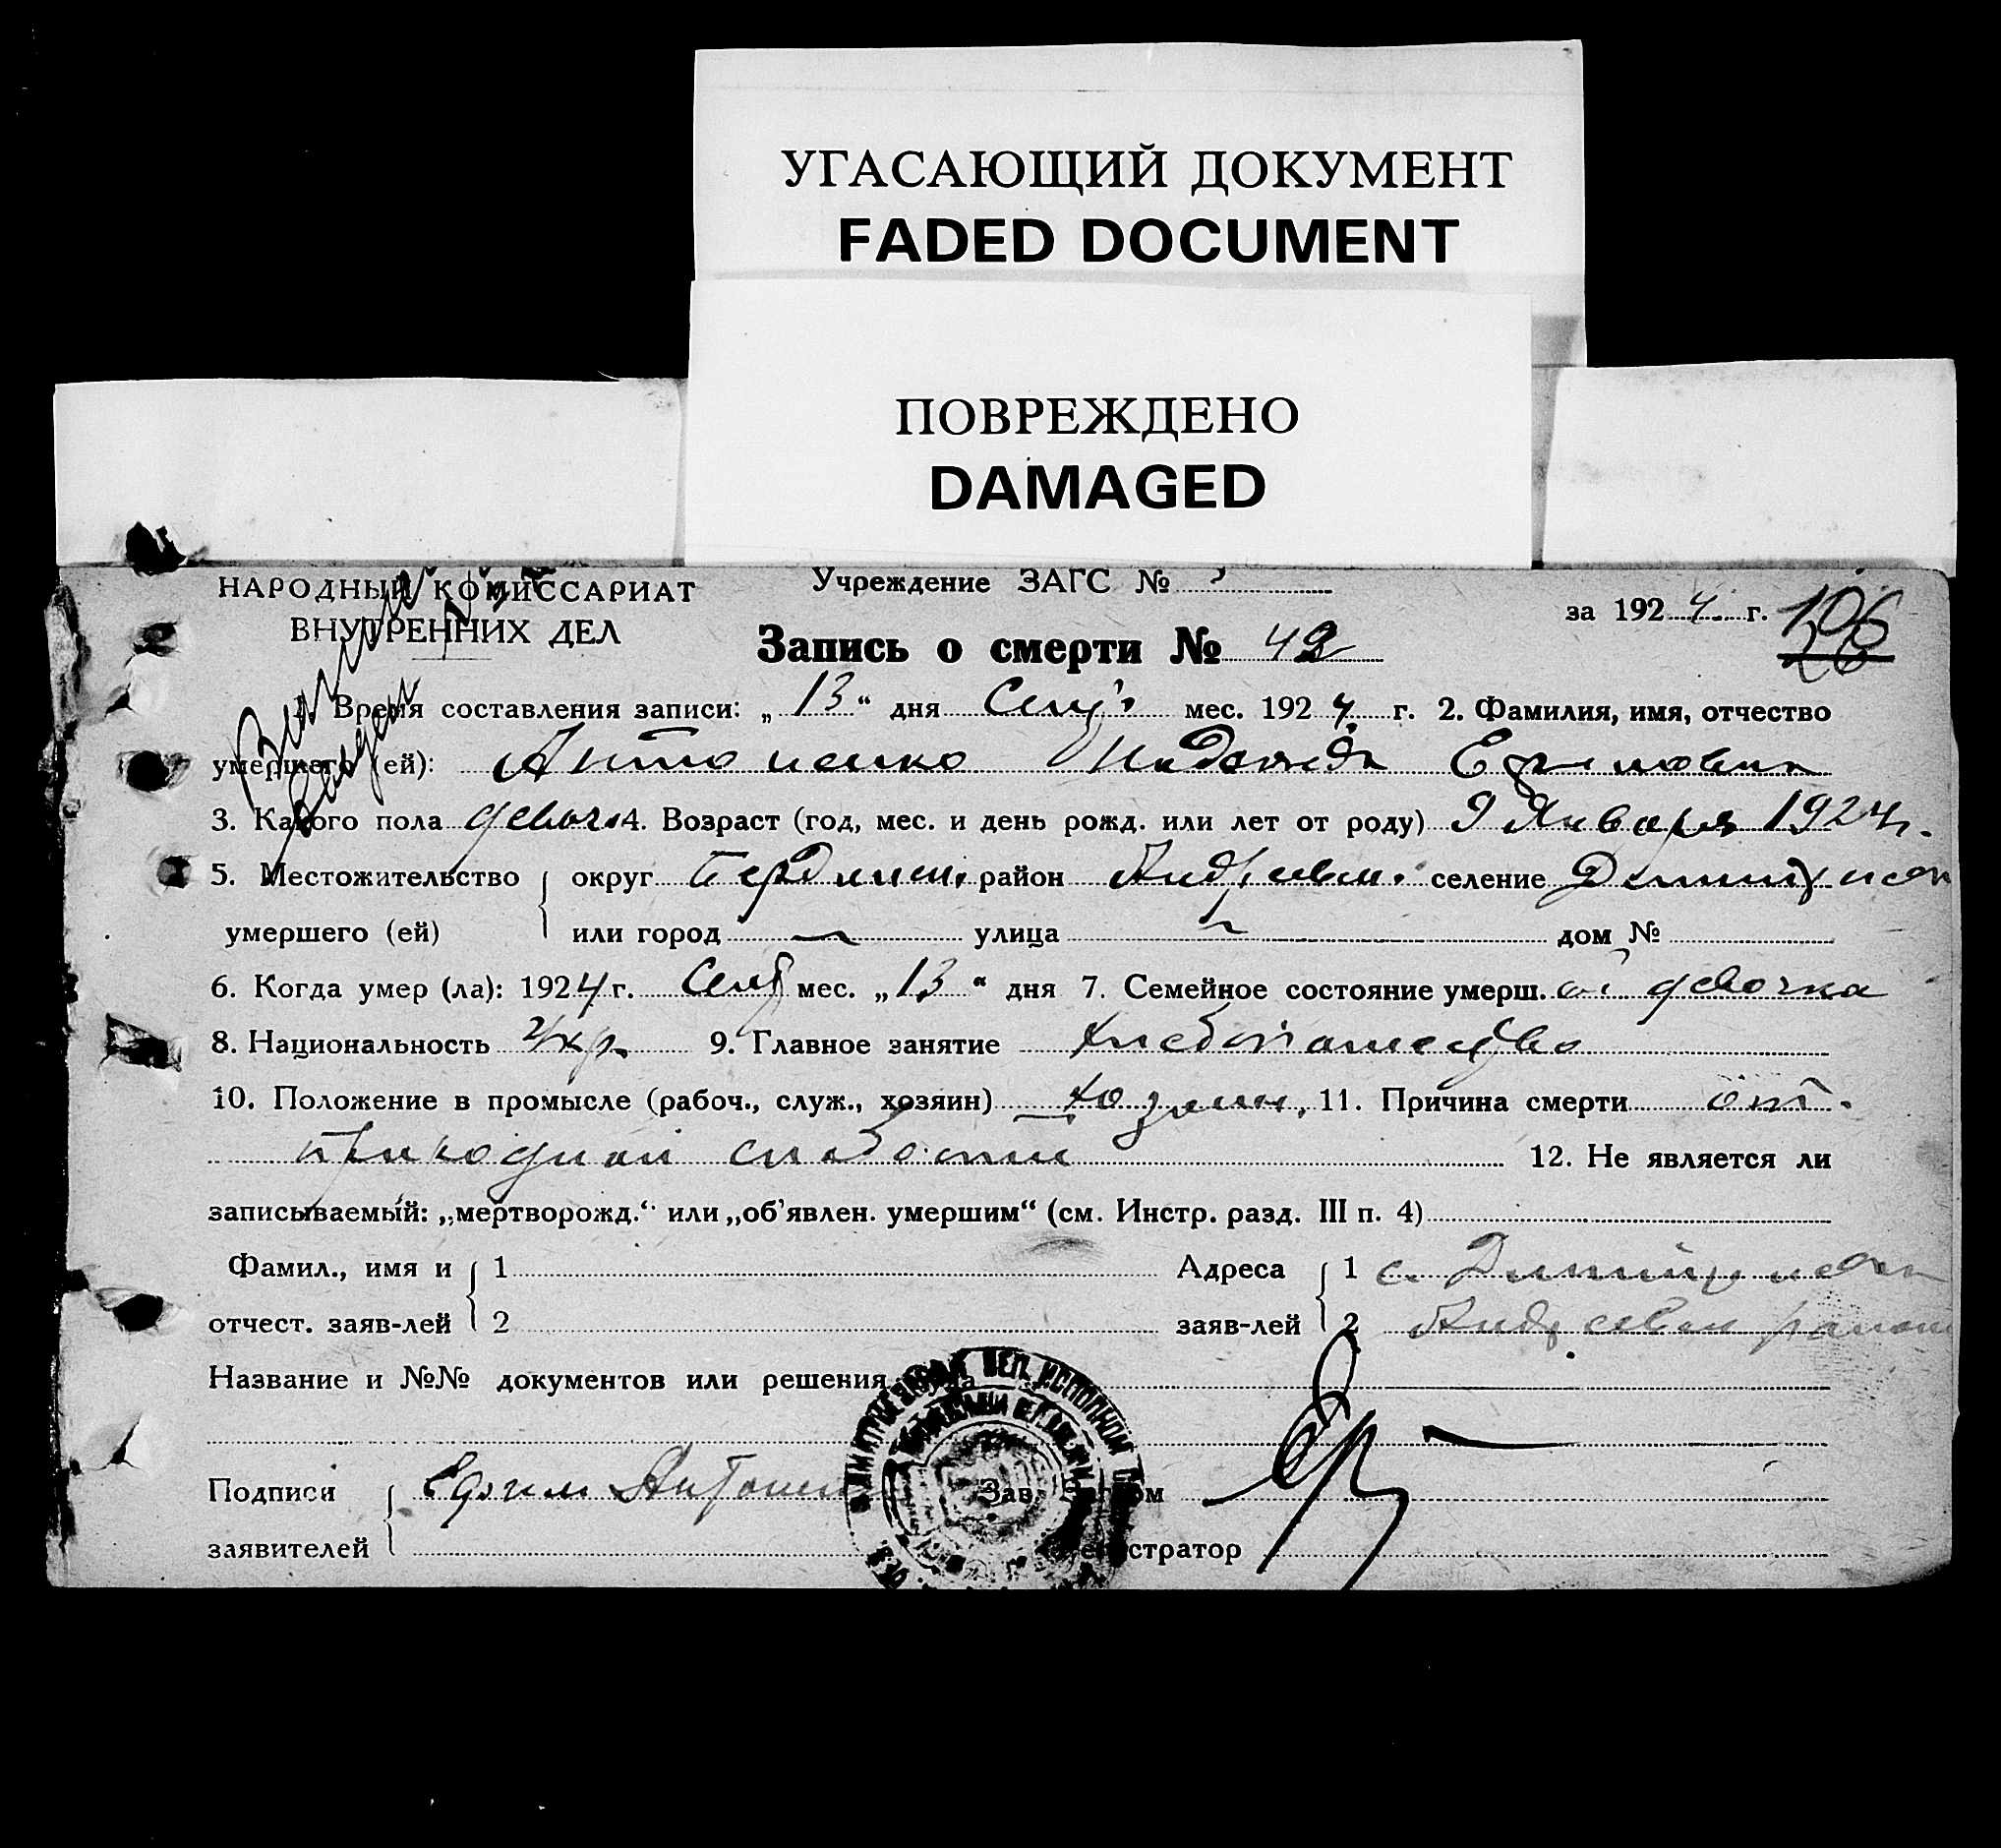 УГАСАЮЩИЙ ДОКУМЕНТ
FADED DOCUMENT
ПОВРЕЖДЕНО
DAMAGED
НАРОДНЫЙ КОМИССАРИАТ
ВНУТРЕННИХ ДЕЛ
Учреждение ЗАГС №
за 1924 г. 106
26
Запись о смерти № 42
1. Время составления записи: „13“ дня мес. 1924 г. 2. Фамилия, имя, отчество
умершего (ей): Антоненко Надежда Ефимовна
3. Какого пола девоч. 4. Возраст (год, мес. и день рожд. или лет от роду) 9 Января 1924 г.
5. Местожительство округ район Андреевск. селение
умершего (ей) или город — улица — дом №
6. Когда умер (ла): 1924 г. Сент мес. „13“ дня 7. Семейное состояние умерш. ой девочка
8. Национальность Укр. 9. Главное занятие хлебопашество
10. Положение в промысле (рабоч., служ., хозяин) хозяин, 11. Причина смерти от.
природной слабости 12. Не является ли
записываемый: „мертворожд.“ или „об'явлен. умершим“ (см. Инстр. разд. III п. 4)
Фамил., имя и 1 Адреса 1 с.
отчест. заяв-лей 2 заяв-лей 2
Название и №№ документов или решения суда
Подписи Ефим Антоненко Зав. Загсом
заявителей Регистратор